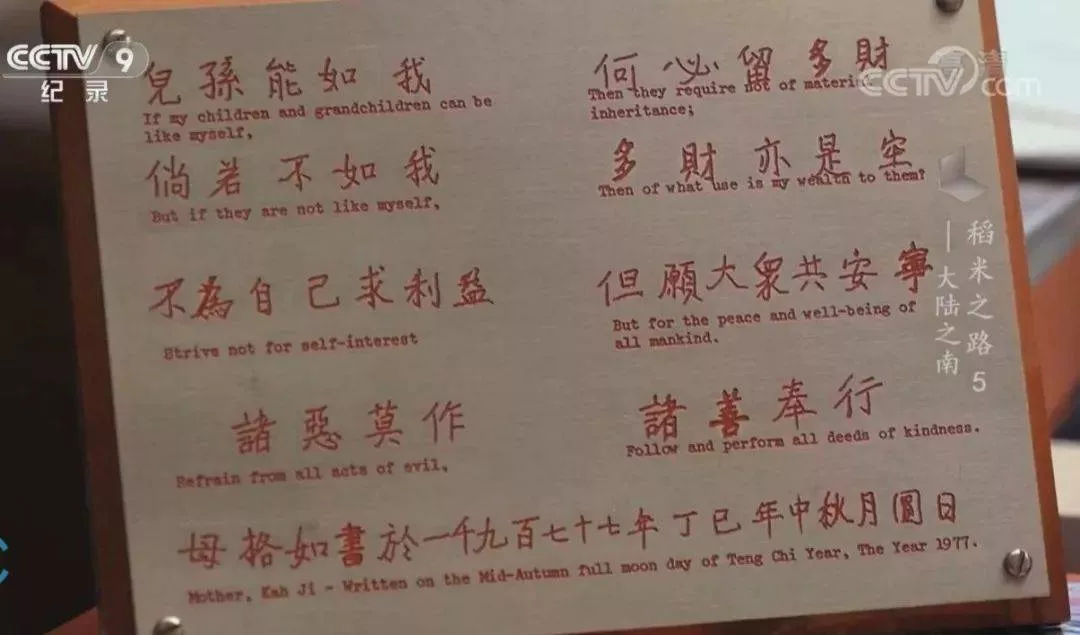 CCTV 9
纪录
高清
CCTV.com
兒孫能如我
If my children and grandchildren can be
like myself,
何必留多財
Then they require not of material
inheritance;
倘若不如我
But if they are not like myself,
多財亦是空
Then of what use is my wealth to them?
不為自己求利益
Strive not for self-interest
但願大眾共安寧
But for the peace and well-being of
all mankind.
諸惡莫作
Refrain from all acts of evil,
諸善奉行
Follow and perform all deeds of kindness.
母格如書於一千九百七十七年丁巳年中秋月圓日
Mother, Kah Ji - Written on the Mid-Autumn full moon day of Teng Chi Year, The Year 1977.
稻米之路 5
—大陆之南